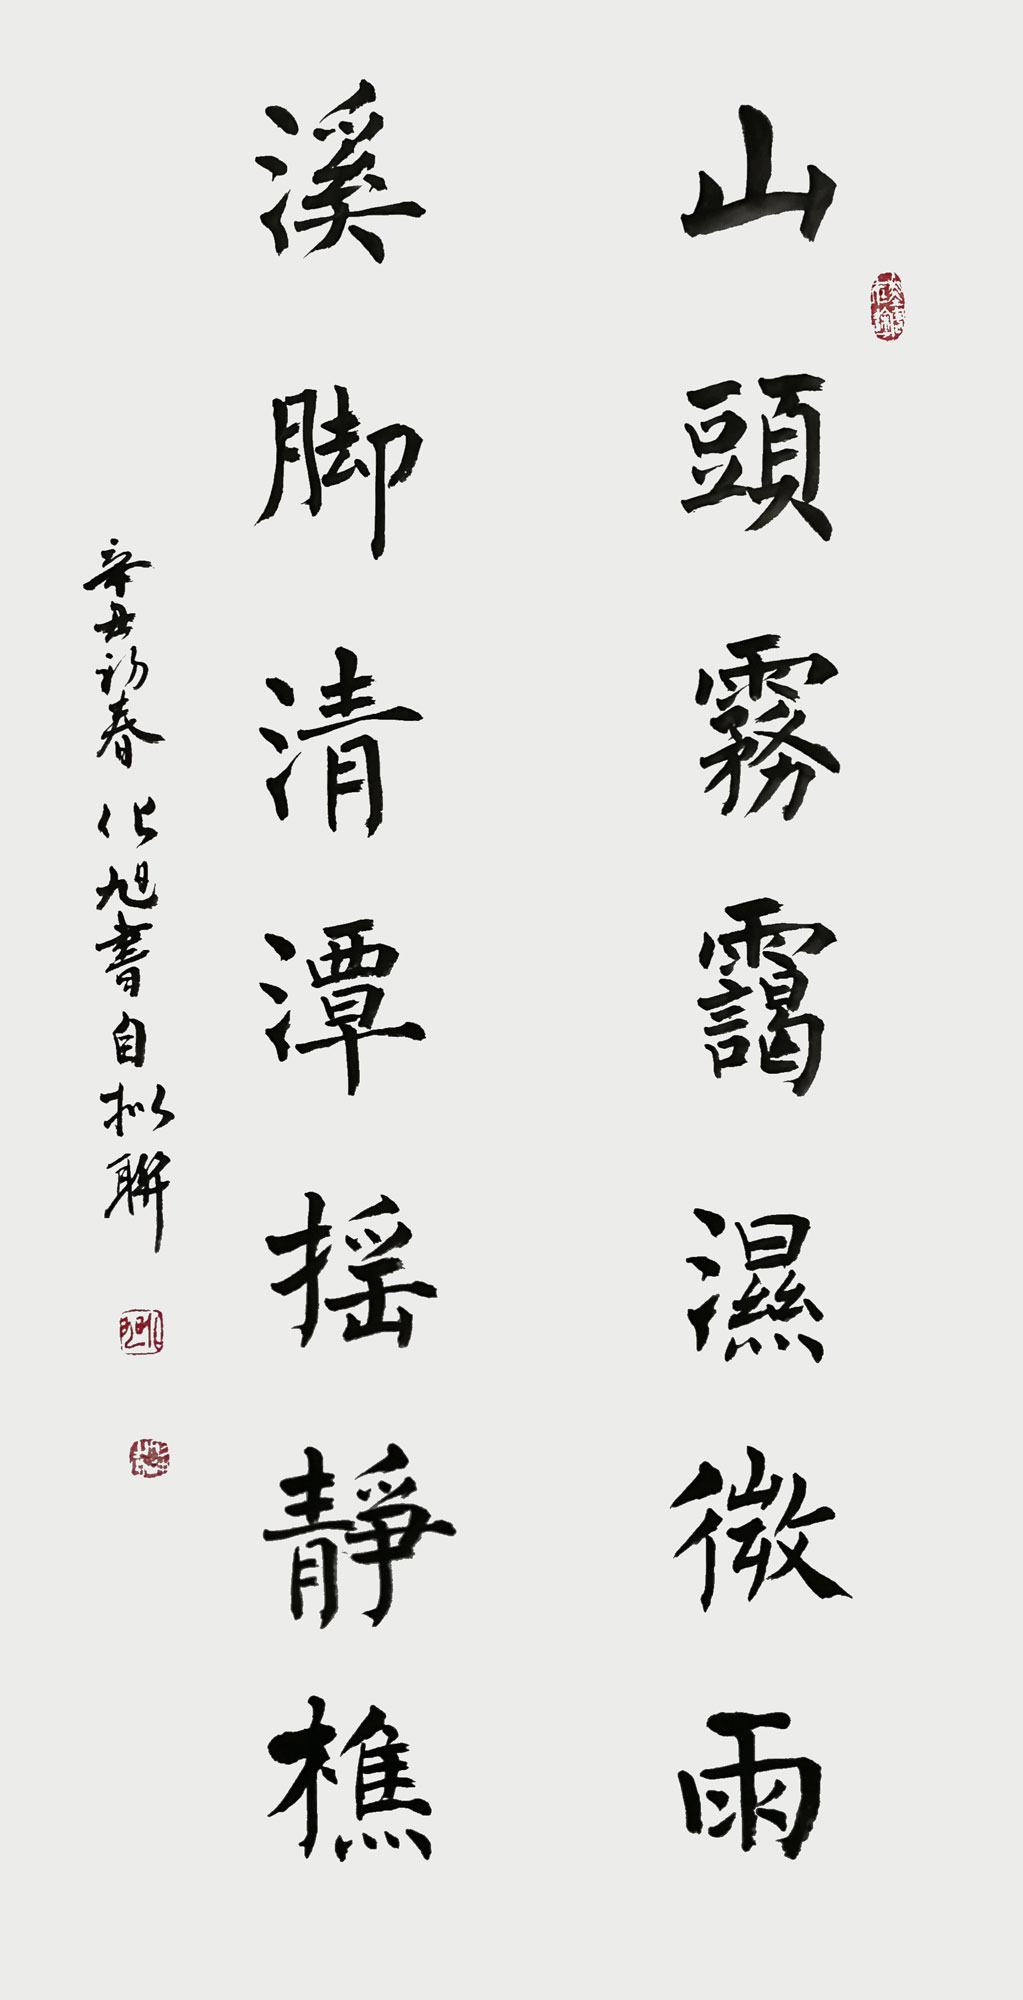 山頭霧靄濕微雨
溪脚清潭摇靜樵
辛丑初春 化旭書自拟聯